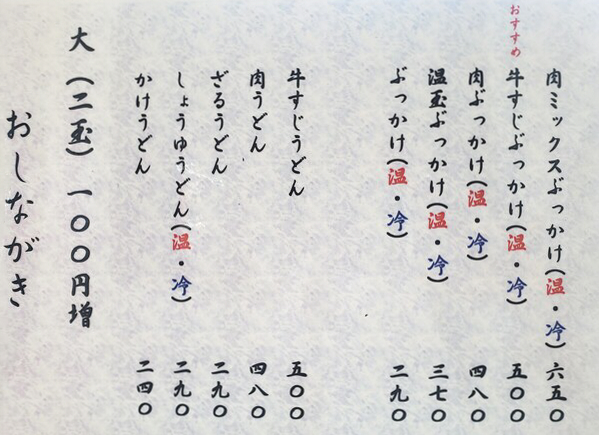 おすすめ
肉ミックスぶっかけ(温・冷) 六五〇
牛すじぶっかけ(温・冷) 五〇〇
肉ぶっかけ(温・冷) 四八〇
温玉ぶっかけ(温・冷) 三七〇
ぶっかけ(温・冷) 二九〇
牛すじうどん 五〇〇
肉うどん 四八〇
ざるうどん 二九〇
しょうゆうどん(温・冷) 二九〇
かけうどん 二四〇
大(二玉)一〇〇円増
おしながき